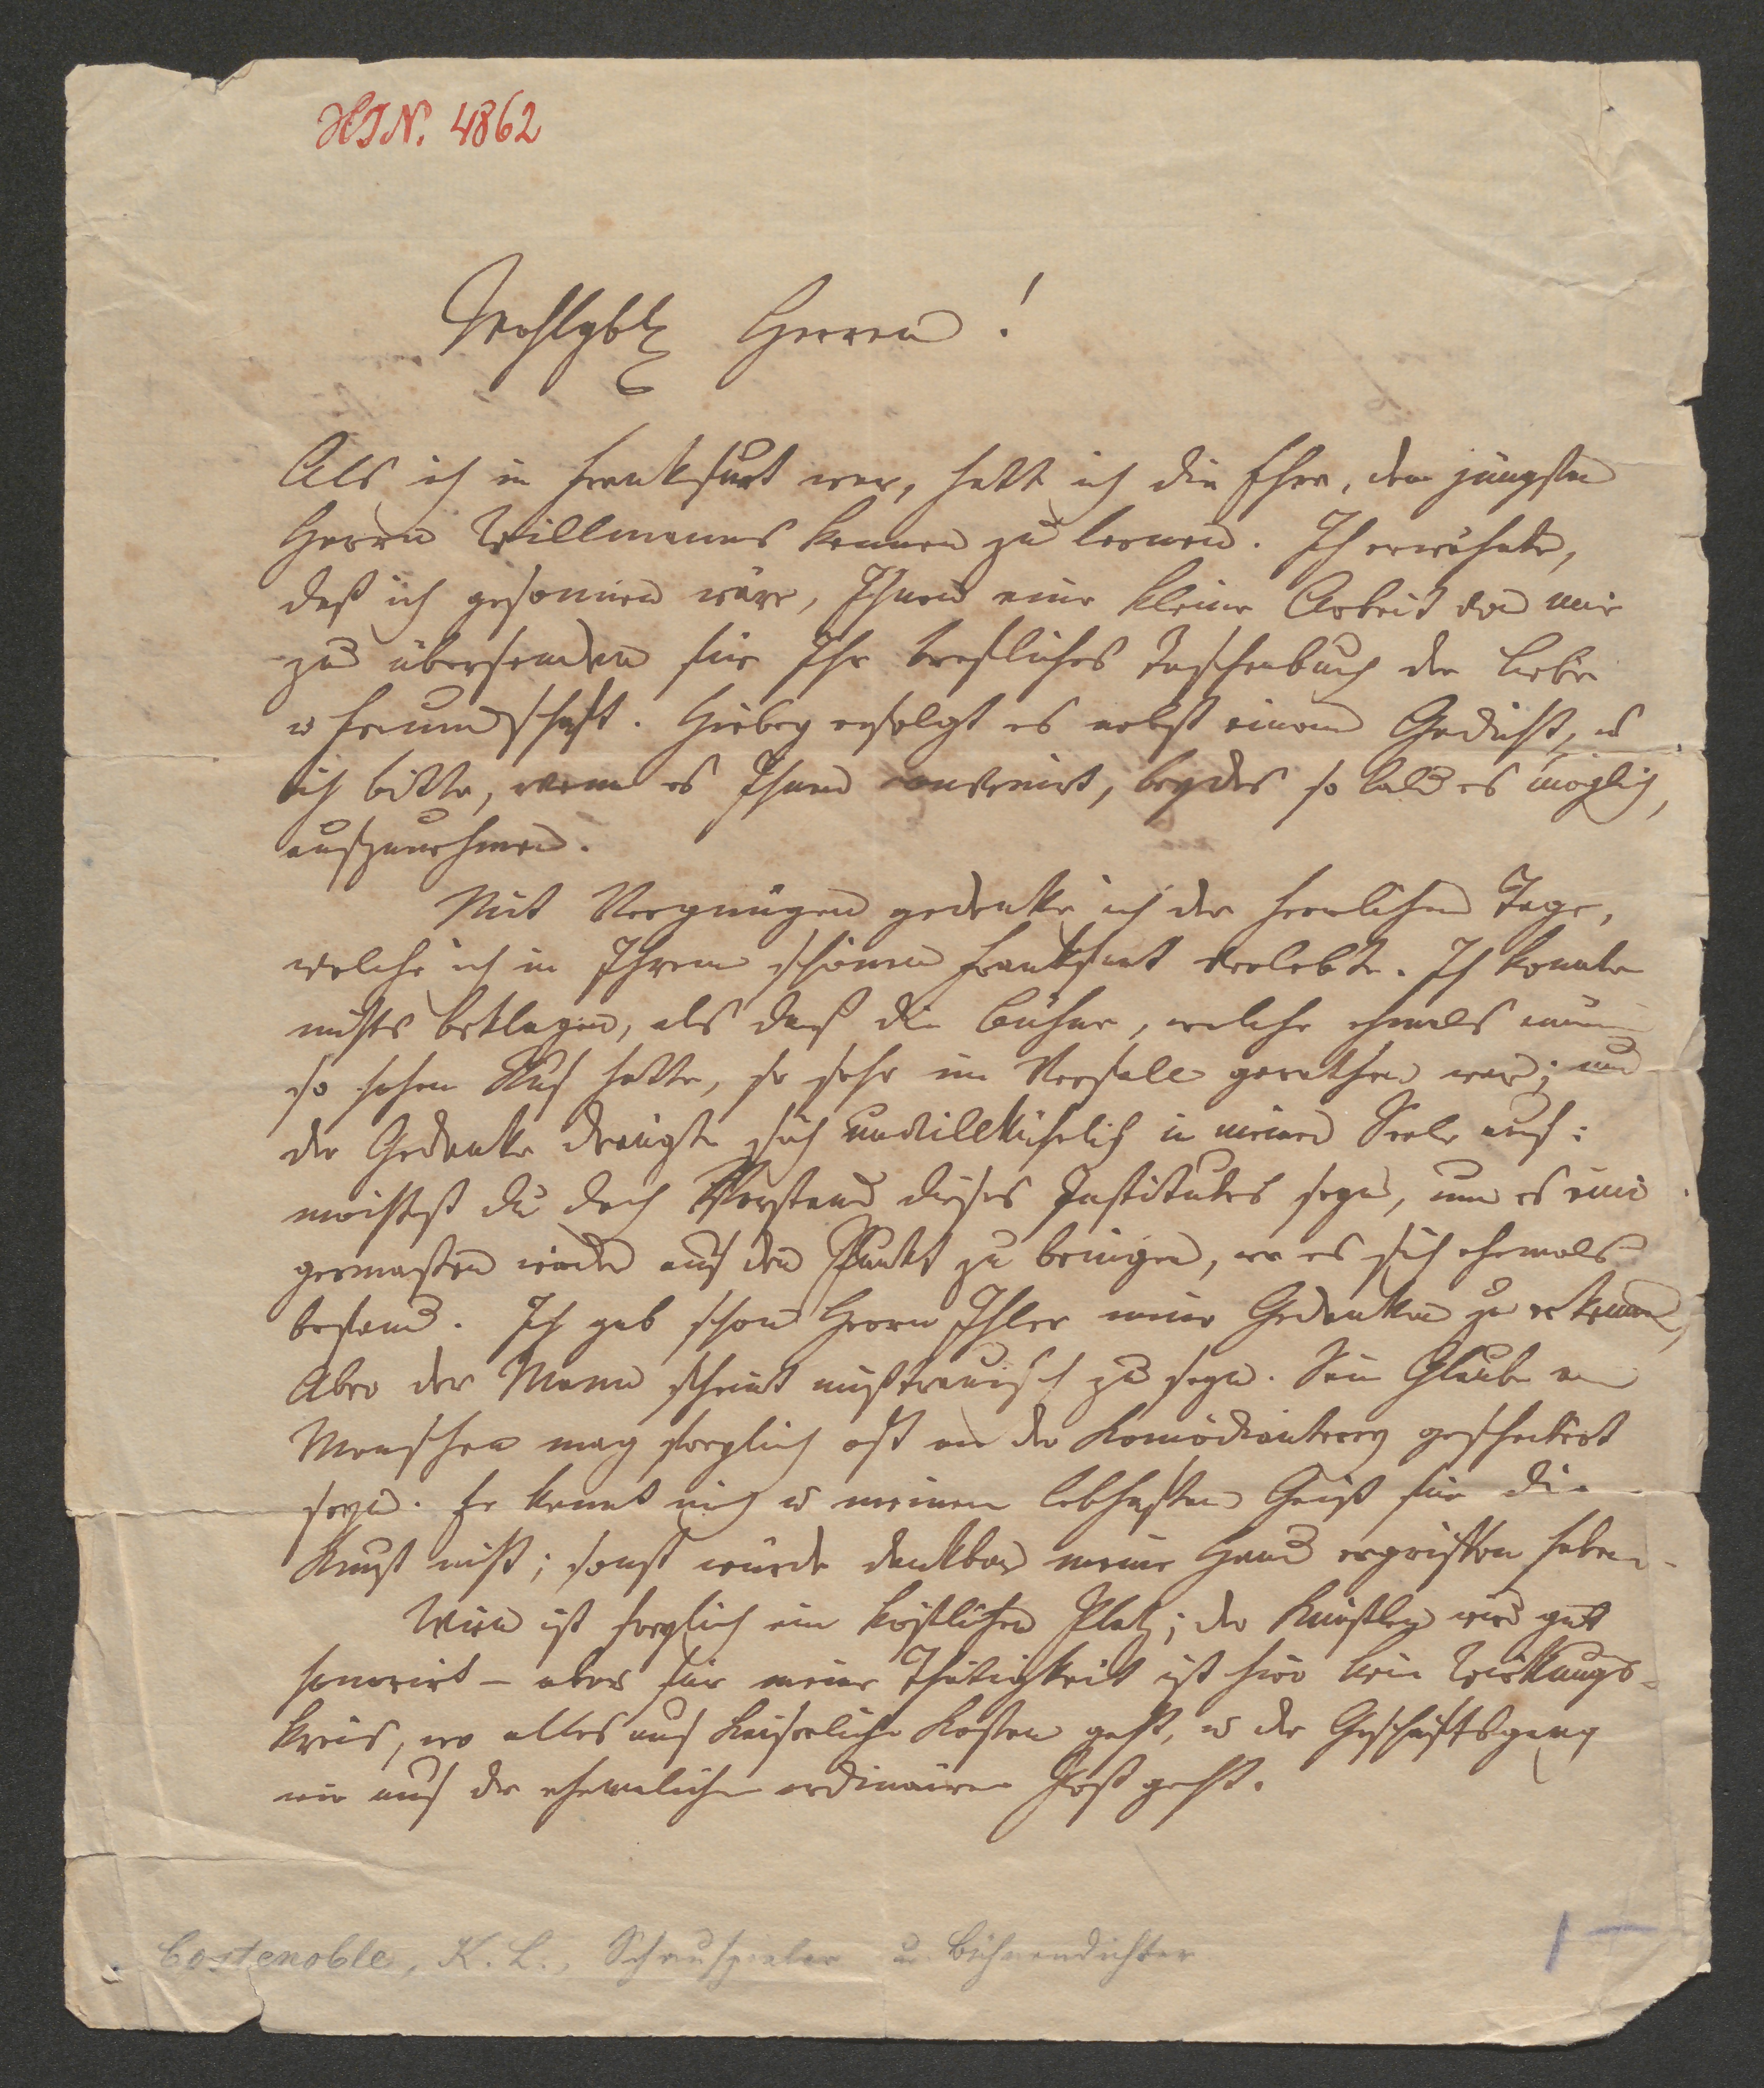 H.I.N. 4862
Wohlgebl Herren!
Als ich in Frankfurt war, hatt ich die Ehre, den jüngsten
Herrn Willmanns kennen zu lernen. Ich erwähnte,
daß ich gesonnen wäre, Ihnen eine kleine Arbeit von mir
zu übersenden für Ihr treffliches Taschenbuch der Liebe
u Freundschaft. Hiebey erfolgt es nebst einem Gedicht, u
ich bitte, wenn es Ihnen convenirt, beydes so bald es möglich,
aufzunehmen.
Mit Vergnügen gedenke ich der herrlichen Tage,
welche ich in Ihrem schönen Frankfurt verlebte. Ich konnte
nichts beklagen, als daß die Bühne, welche ehmals einen
so hohen Ruf hatte, so sehr im Verfall gerathen war; und
der Gedanke drängte sich unwillkührlich in meiner Seele auf:
möchtest du doch Vorstand dieses Institutes seyn, um es eini
germaßen wieder auf den Punkt zu bringen, wo es sich ehemals
befand. Ich gab schon Herrn Ihlee meine Gedanken zu erkennen,
Aber der Mann scheint mißtrauisch zu seyn. Sein Glaube an
Menschen mag freylich oft an der Komödianterey gescheitert
seyn. Er kennt mich u meinen lebhaften Geist für die
Kunst nicht; sonst würde dankbar meine Hand ergriffen haben.
Wien ist freylich ein köstlicher Platz; der Künstler wird gut
honorirt – aber für meine Thätigkeit ist hier kein Wirkungs-
kreis, wo alles auf Kaiserliche Kosten geht, u der Geschäftsgang
wie auf der ehemaligen ordinairen Post geht.
Costenoble, K. L., Schauspieler u. Bühnendichter